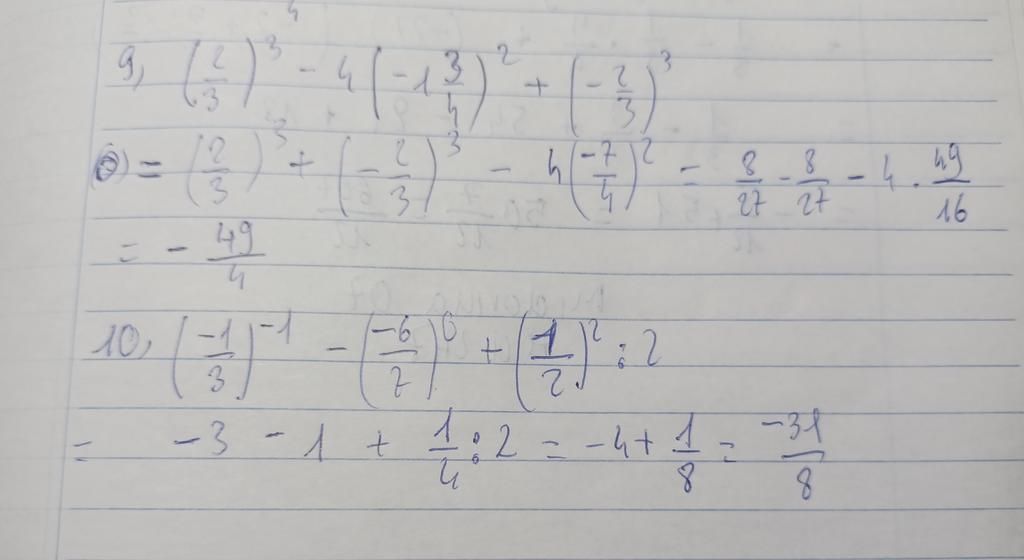 4
9, (2/3)^3 - 4(-1 3/4)^2 + (-2/3)^3
= (2/3)^3 + (-2/3)^3 - 4(-7/4)^2 = 8/27 - 8/27 - 4 . 49/16
= - 49/4
10, (-1/3)^-1 - (-6/7)^0 + (1/2)^2 : 2
= -3 - 1 + 1/4 : 2 = -4 + 1/8 = -31/8